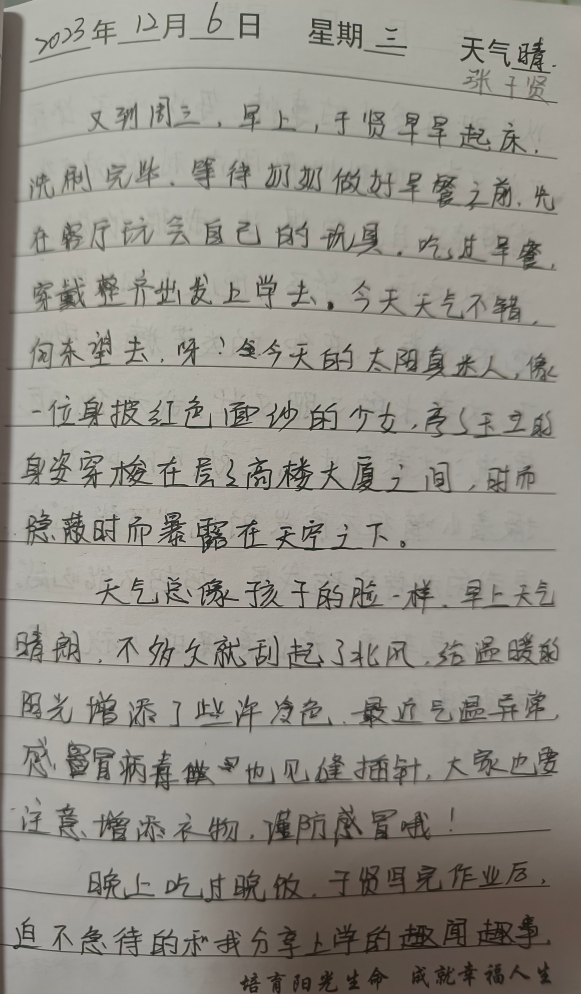 2023年 12月 6日 星期三 天气晴.
张于贤
又到周三，早上，于贤早早起床，
洗刷完毕、等待奶奶做好早餐之前，先
在客厅玩会自己的玩具，吃过早餐，
穿戴整齐出发上学去。今天天气不错，
向东望去，呀！今天的太阳真迷人，像
一位身披红色面纱的少女，亭亭玉立的
身姿穿梭在层层高楼大厦之间，时而
隐蔽时而暴露在天空之下。
天气总像孩子的脸一样，早上天气
晴朗，不多久就刮起了北风，给温暖的
阳光增添了些许冷色，最近气温异常，
感冒病毒也见缝插针，大家也要
注意增添衣物，谨防感冒哦！
晚上吃过晚饭，于贤写完作业后，
迫不急待的和我分享上学的趣闻趣事，
培育阳光生命 成就幸福人生